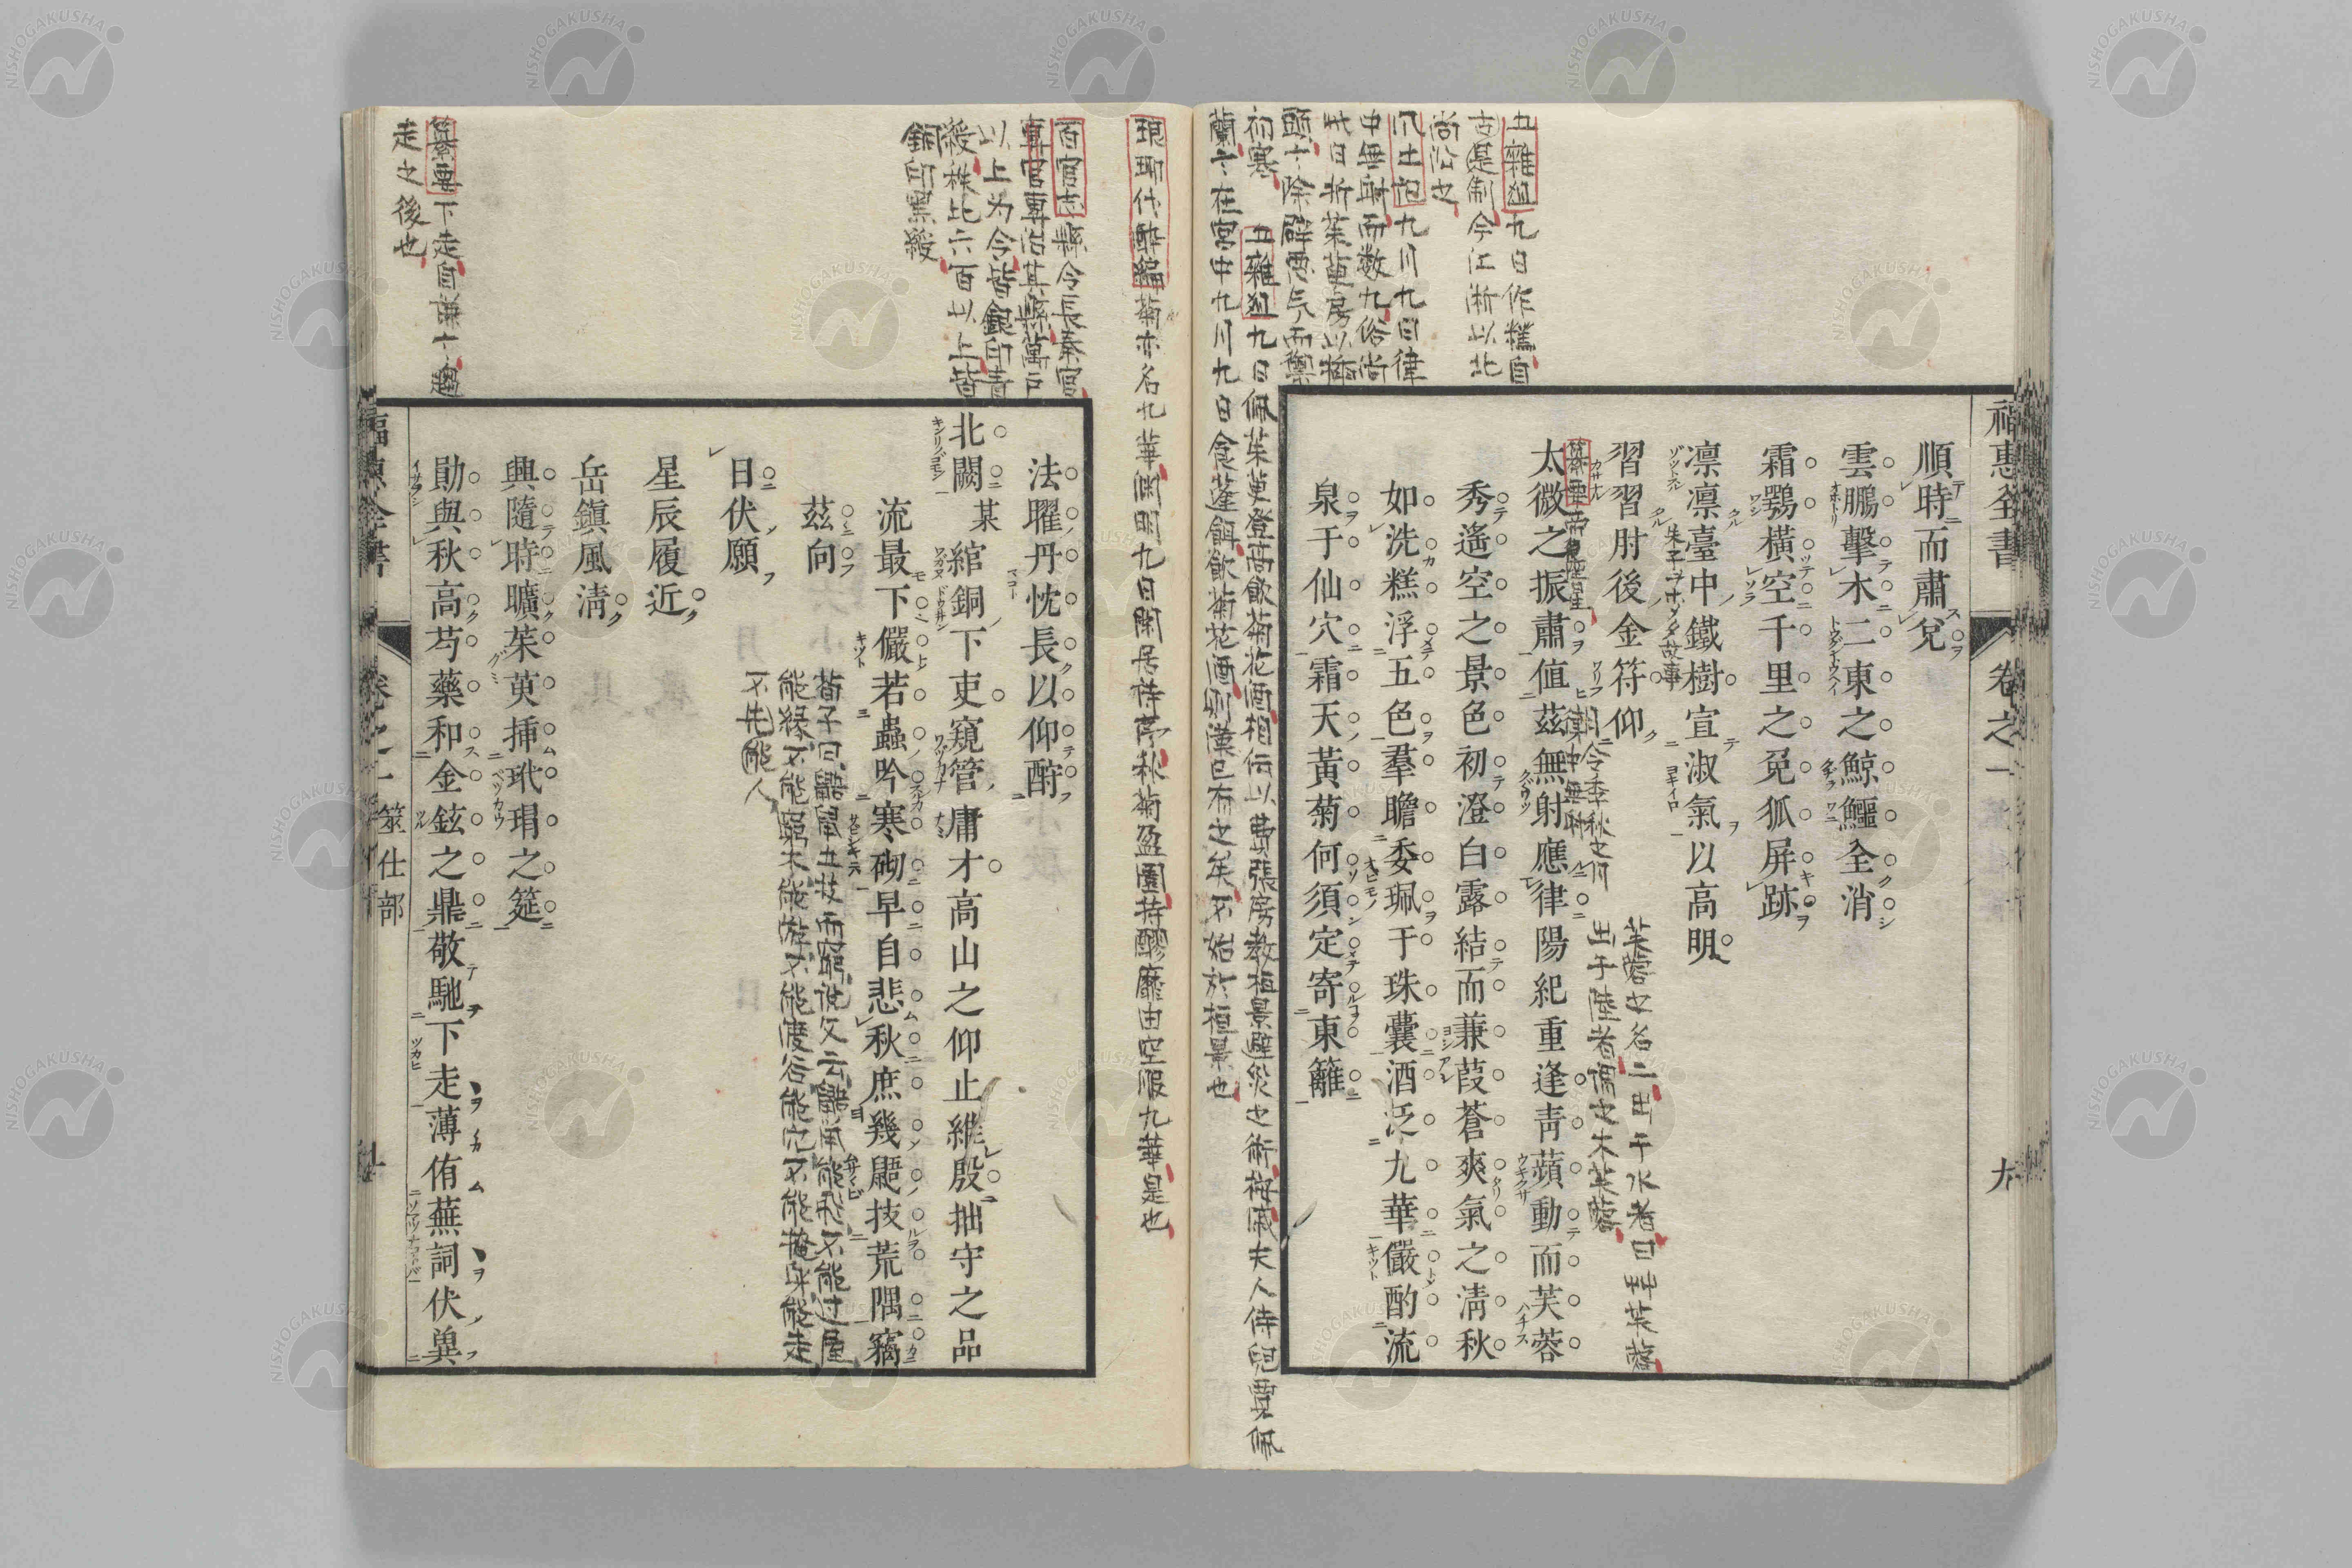 福惠全書
卷之一
九
順時而肅兌
雲鵬擊木二東之鯨鱷全消
霜鶚橫空千里之兔狐屏跡
凛凛臺中鐵樹宣淑氣以高明
朱子ヲホメタ故事
習習肘後金符仰
太微之振肅值茲無射應律陽紀重逢靑蘋動而芙蓉
芙蓉之名二出于水者曰艸芙蓉
出于陸者偶之木芙蓉
秀遙空之景色初澄白露結而蒹葭蒼爽氣之淸秋
如洗糕浮五色羣瞻委珮于珠囊酒泛九華儼酌流
泉于仙穴霜天黃菊何須定寄東籬
五雜俎九日作糕自
古是制今江浙以北
尚沿之
風土記九月九日律
中無射而数九俗尚
此日折茱萸房以插
頭言除辟惡气而禦
初寒 五雜俎九日佩茱萸登高飲菊花酒相伝以費張房教桓景避災之術
夫人侍兒賈佩
蘭言在宮中九月九日食蓬餌飲菊花酒則漢已有之矣不始於桓景也
琅琊代醉編菊亦名九華渊明九日閑居詩序秋菊盈園持醪靡由空服九華是也
法曜丹忱長以仰酹
北闕某綰銅下吏窺管庸才高山之仰止維殷拙守之品
流最下儼若蟲吟寒砌早自悲秋庶幾鼯技荒隅竊
茲向
日伏願
星辰履近
岳鎭風淸
興隨時曠茱萸揷玳瑁之筵
勛與秋高芍藥和金鉉之鼎敬馳下走薄侑蕪詞伏兾
百官志縣令長秦官
以上为令皆銀印青
綬秩比六百以上皆
銅印黑綬
荀子曰鼯鼠五技而窮説文云鼯鼠能飛不能过屋
能緣不能窮木能游不能度谷能穴不能掩身能走
不能先人
纂要下走自謙言趨
走之後也
福惠全書
卷之一
筮仕部